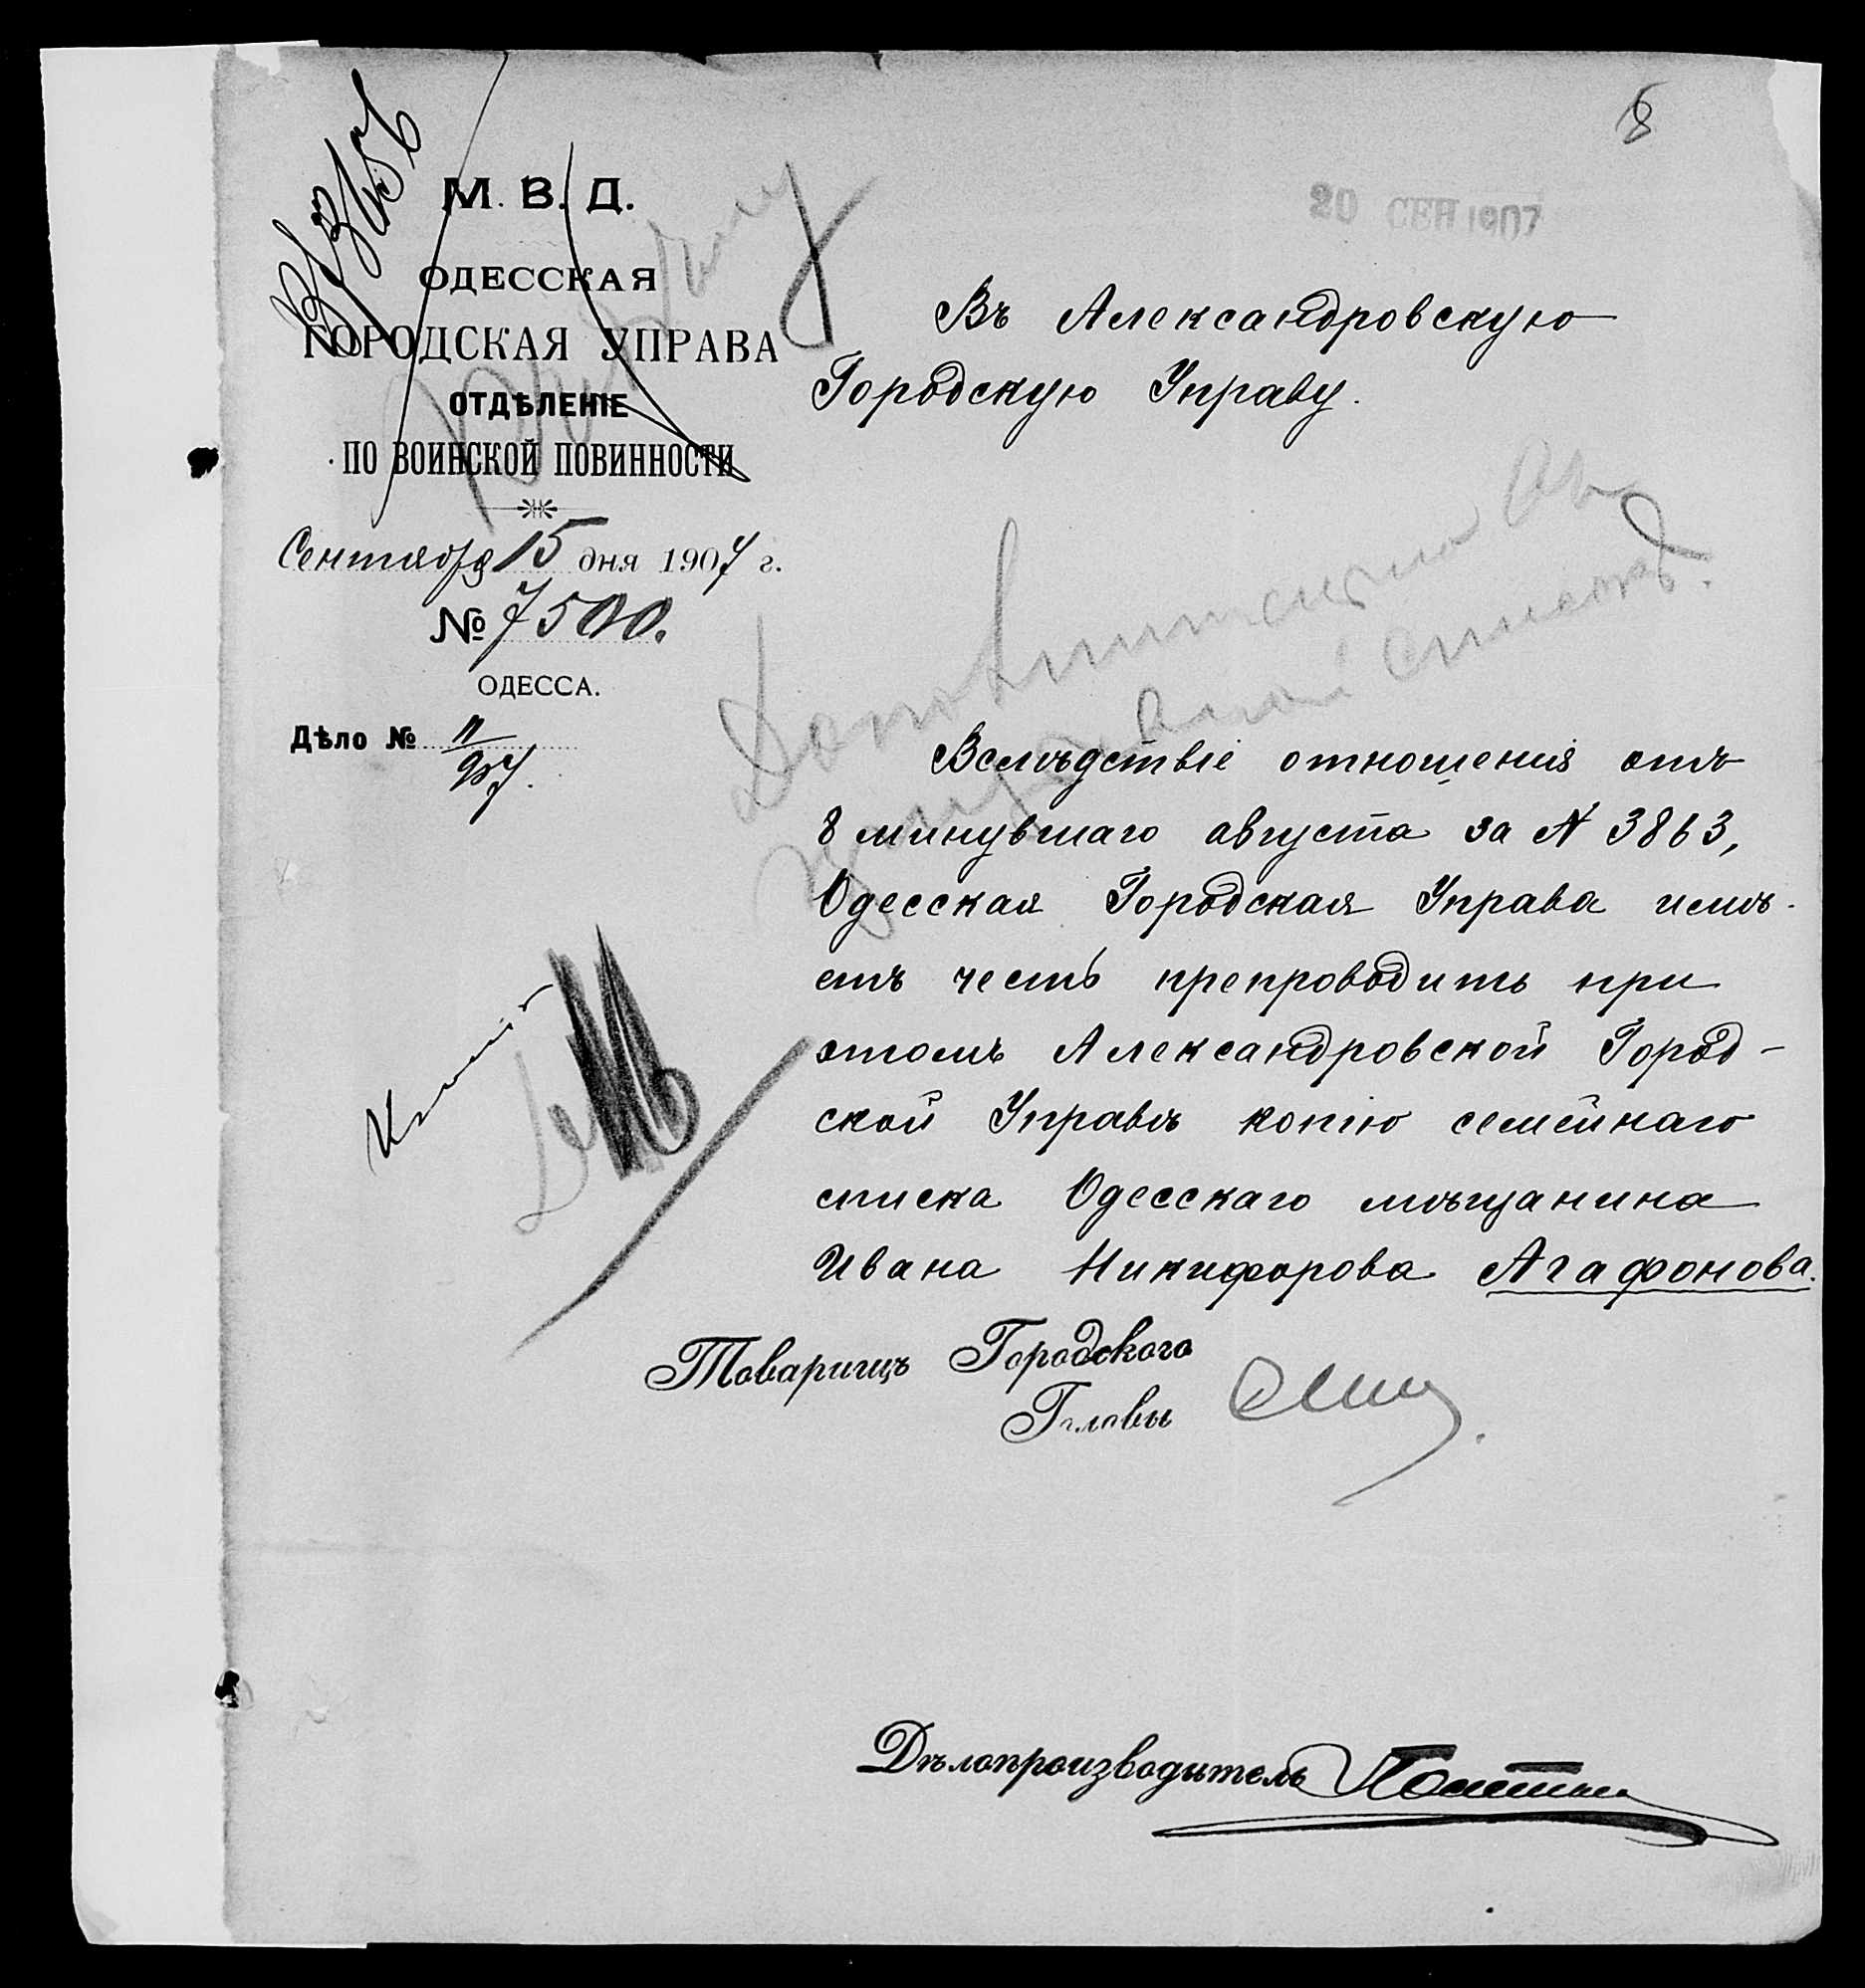 8
20 СЕН 1907
М. В. Д.
ОДЕССКАЯ
ГОРОДСКАЯ УПРАВА
ОТДѢЛЕНІЕ
ПО ВОИНСКОЙ ПОВИННОСТИ
Сентября 15 дня 1907 г.
№ 7500.
ОДЕССА.
Дѣло №
Въ Александровскую
Городскую Управу.
Вслѣдствіе отношенія отъ
8 минувшаго августа за N 3863,
Одесская Городская Управа имѣ-
етъ честь препроводить при
этомъ Александровской Город-
ской Управѣ копію семейнаго
списка Одесскаго мѣщанина
Ивана Никифорова Агафонова.
Товарищъ Городского
Головы
Дѣлопроизводитель